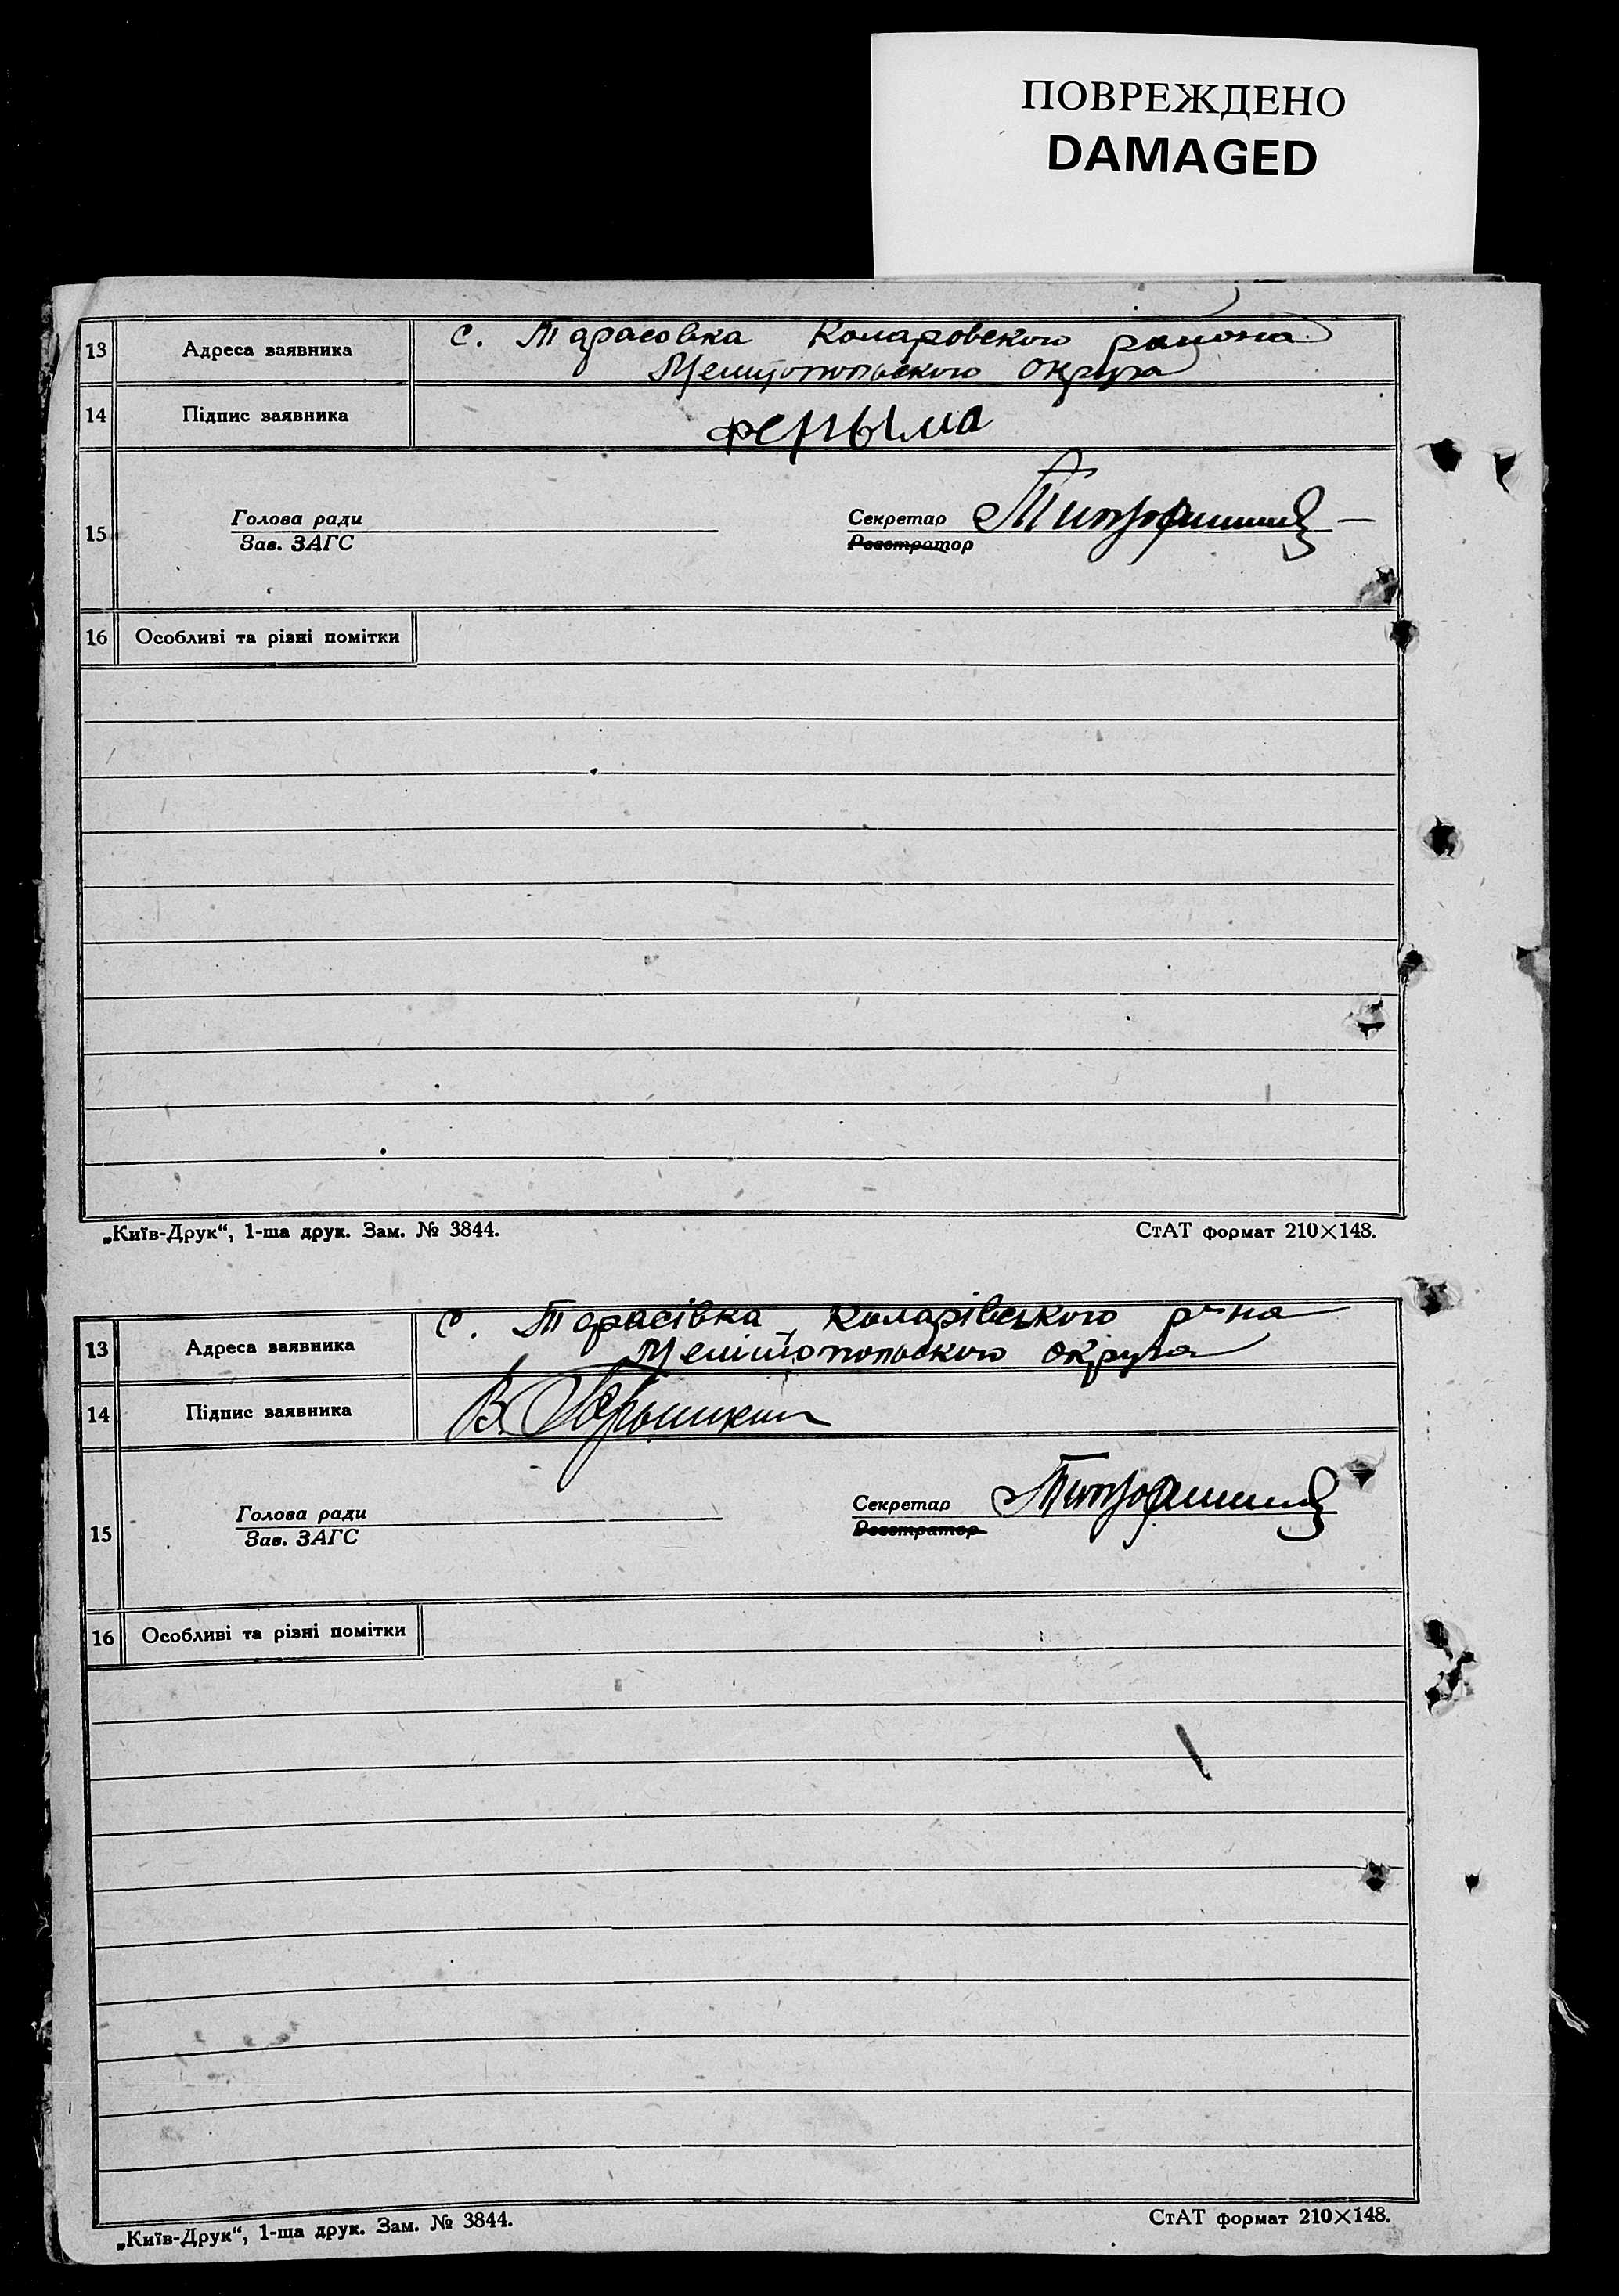 ПОВРЕЖДЕНО
DAMAGED
13 Адреса заявника с. Тарасовка Коларовского района
Мелитопольского округа
14 Підпис заявника
15 Голова ради Секретар
Зав. ЗАГС Реєстратор
16 Особливі та різні помітки
„Київ-Друк“, 1-ша друк. Зам. № 3844. СтАТ формат 210×148.
13 Адреса заявника с. Тарасівка Коларівського р-на
Мелітопольского округа
14 Підпис заявника В.
15 Голова ради Секретар
Зав. ЗАГС Реєстратор
16 Особливі та різні помітки
„Київ-Друк“, 1-ша друк. Зам. № 3844. СтАТ формат 210×148.